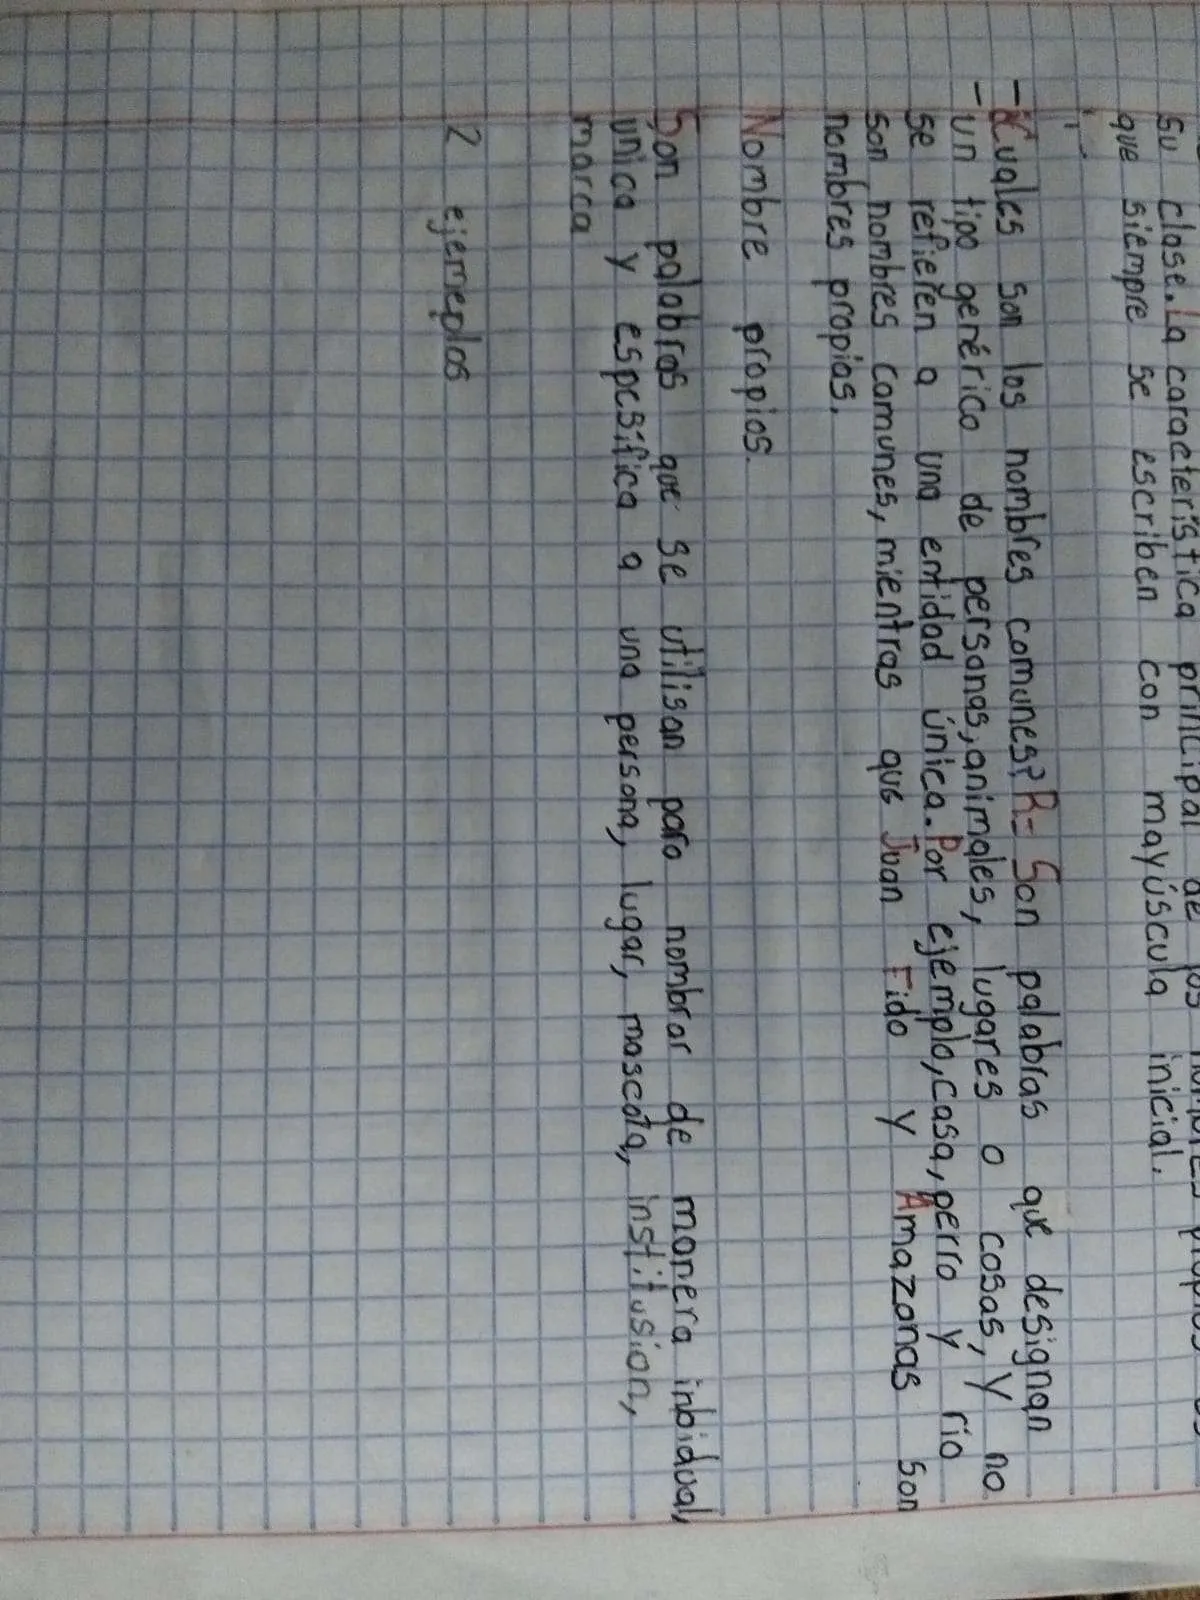 su clase. La caracteristica principal de los nombres propios es
que siempre se escriben con mayúscula inicial.
-¿Cuales son los nombres comunes? R= Son palabras que designan
-un tipo genérico de personas, animales, lugares o cosas, y no
se refieren a una entidad única. Por ejemplo, casa, perro y rio
son nombres comunes, mientras que Juan Fido y Amazonas son
nombres propios.
Nombre propios.
Son palabras que se utilisan para nombrar de manera inbidual,
unica y espesifica a una persona, lugar, mascota, institusion,
marca
2 ejemeplos